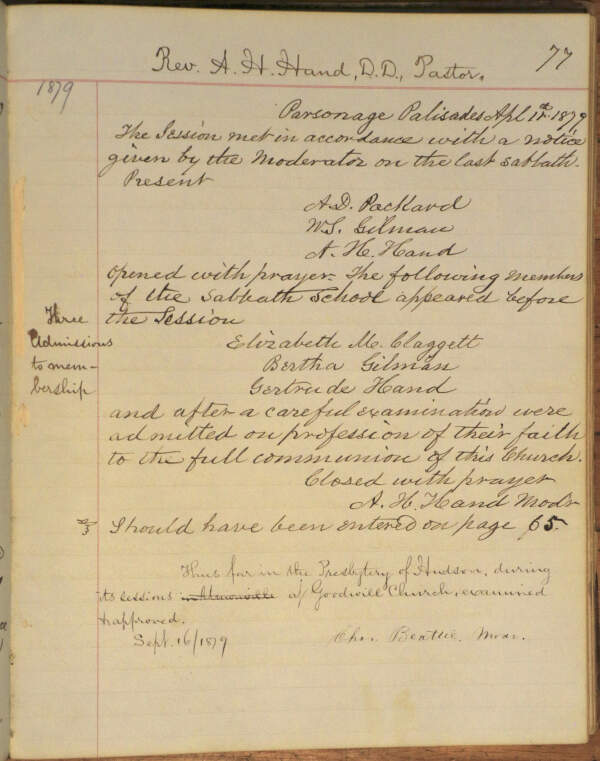 Rev. A. H. Hand, D.D., Pastor.
77
1879
Parsonage Palisades Apl 1st 1879
The Session met in accordance with a notice
given by the Moderator on the last Sabbath.
Present
A.D. Packard
W.S. Gilman
A. H. Hand
opened with prayer. The following members
of the Sabbath School appeared before
the Session
Three
Admissions
to mem-
bership
Elizabeth M. Claggett
Bertha Gilman
Gertrude Hand
and after a careful examination were
admitted on profession of their faith
to the full communion of this Church.
Closed with prayer
A. H. Hand Modr
Should have been entered on page 65.
Thus far in the Presbytery of Hudson, during
its sessions at Goodwill Church, examined
& approved.
Sept. 16/1879
Chs. Beattie. Modr.